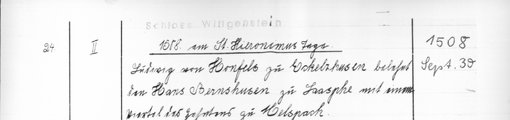 Schloss Wittgenstein
24 II 1508. am St. Hieronimus Tage. 1508
Ludwig von Honfels zu belehnt Sept. 30
den Hans zu Laasphe mit einem
viertel des Zehntens zu Melspach.